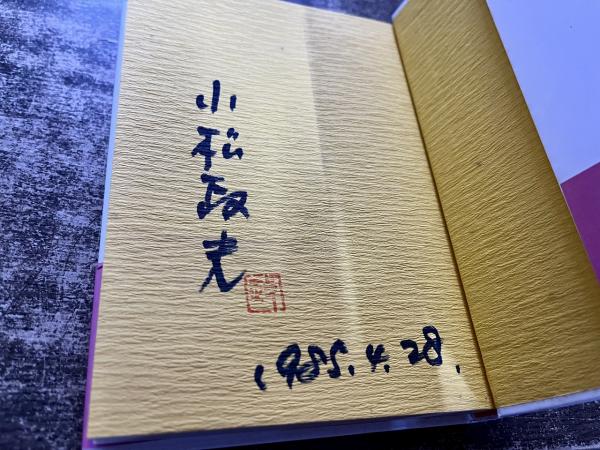 小松政夫
1985.4.28.